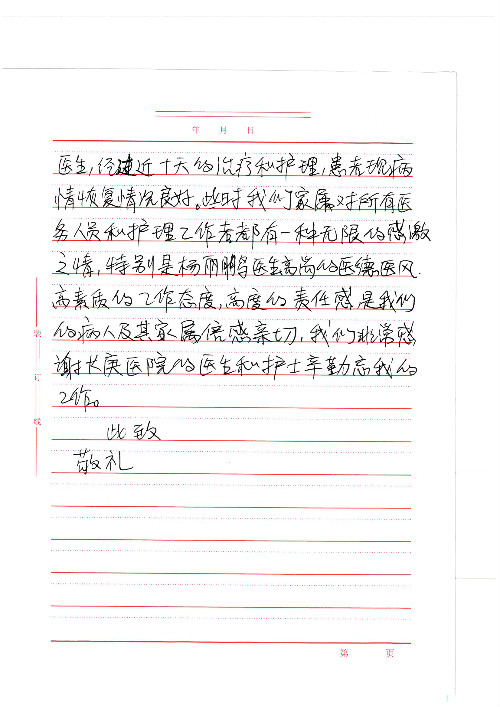 年 月 日
医生,经过近十天的治疗和护理,患者现病
情恢复情况良好,此时我们家属对所有医
务人员和护理工作者都有一种无限的感激
之情,特别是杨丽鹏医生高尚的医德医风.
高素质的工作态度,高度的责任感是我们
的病人及其家属倍感亲切,我们非常感
谢长庚医院的医生和护士辛勤忘我的
工作。
此致
敬礼
装
订
线
第 页